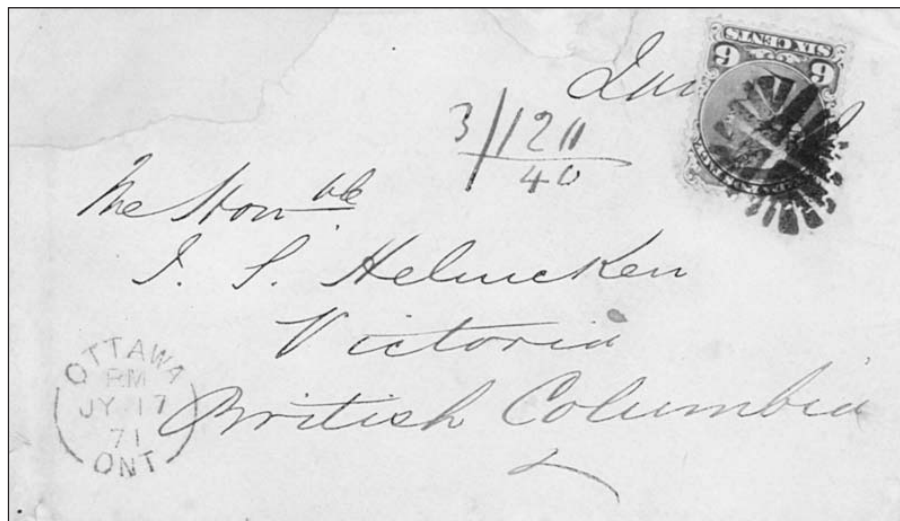 SIX CENTS
6 6
3/1211
40
The Honble
J. S. Helmcken
Victoria
British Columbia
OTTAWA
PM
JY 17
71
ONT